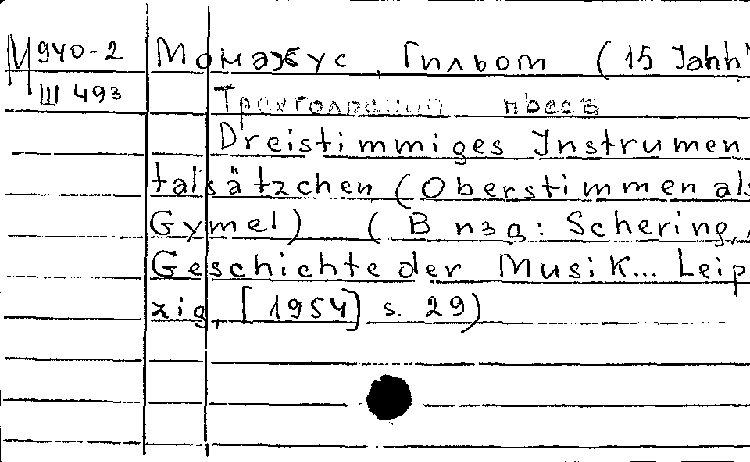 М 940-2 Монахус, Гильом (15 Jahh
III 493 Трехголосный пьеса
Dreistimmiges Instrumen
talsätzchen (Oberstimmen als
Gymel) (В изд: Schering,
Geschichte der Musik... Leip
zig, [1954] s. 29)